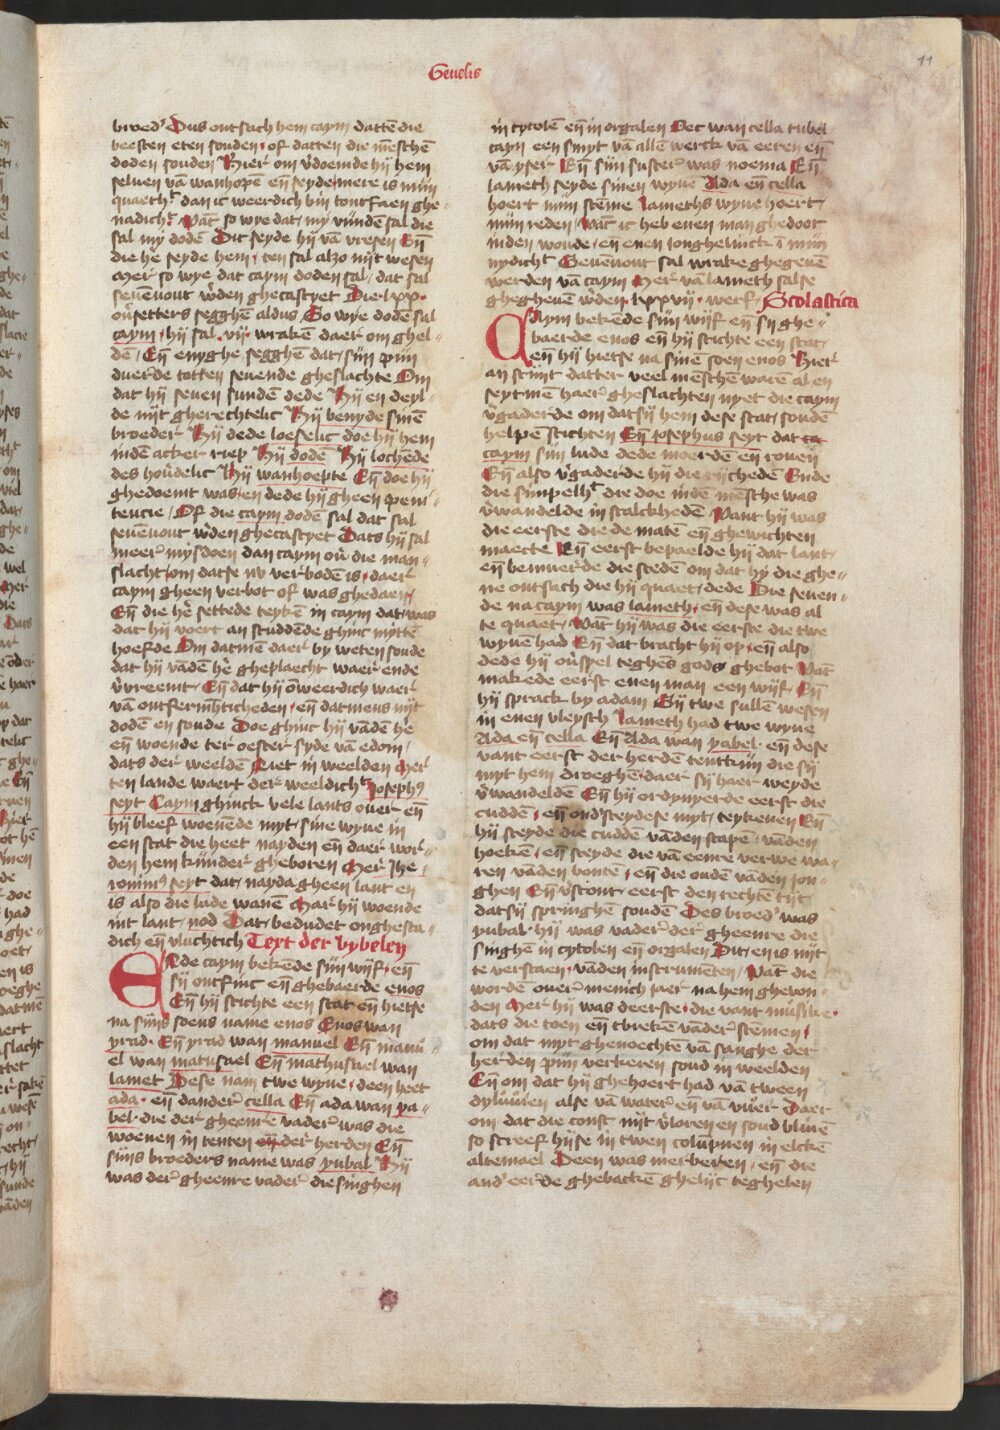 Genesis
11
broed' Dus ontsach hem caym datten die
beesten eten souden · of datten die mēschē
doden souden Hier om v̄doemde hij hem
seluen vā wanhopē eñ seyde mere is mijn
quaeth' dan ic weerdich bin tontfaen ghe-
nadich' Wāt so wye dat my vindē sal die
sal my dodē Dit seyde hij vā vresen Eñ
die hē seyde hem / ten sal alzo nijt wesen
Mer so wye dat caym doden sal / dat sal
seuēuout w̄den ghecastyet Die lxx ·
ou̅setters segghē aldus So wye dodē sal
caym / hij sal · vij · wrakē daer om ghel-
dē / Eñ enyghe segghē dat / sijn pijn
duerde totten seuende gheslachte Om
dat hij seuen sundē dede Hij en deyl-
de nijt gherechtelic Hij benyde sinē
broeder Hij dede loeselic doe hij hem
indē acker riep Hij dodē Hij lochēde
des houdelic Hij wanhoepte Eñ doe hij
ghedoemt was / en dede hij gheen peni-
tencie / Of die caym dodē sal dat sal
seuēuout w̄den ghecastyet Dats hij sal
meer mysdoen dan caym ou̅ die man-
slacht / om datse nv verbodē is / daer
caym gheen verbot of was ghedaen /
Eñ die hē settede teykē in caym dat / was
dat hij voert an studdēde ghinc mytten
hoefde Om datmē daer by weten soude
dat hij vādē hē gheplaecht waer ende
v̄vreemt / Eñ dat hij ōweerdich waer
vā ontfermh'ticheden / eñ datmens nijt
dodē en soude Doe ghinc hij vādē hē
eñ woende ter oester syde vā edom /
dats der weeldē Liet in weelden Mer
ten lande waert der weeldich' Joseph9
seyt Caym ghinck vele lants ouer eñ
hij bleef woenēde myt / sine wyue in
een stat die heet nayden eñ daer wor-
den hem kinder gheboren Mer Jhe
ronim9 seyt dat / nayda gheen lant en
is also die lude wanē Mar hij woende
int lant / nod Dat / bedudet onghesta-
dich eñ vluchtich Text der bybelen
Ende caym bekēde sijn wijf / eñ
sij ontfinc eñ ghebaerde enos
Eñ hij stichte een stat eñ hietse
na sijns soens name enos Enos wan
yrad · Eñ yrad wan manuel Eñ manu-
el wan matusael Eñ mathusael wan
lamet Dese nam twe wyue / deen heet
ada · eñ dander cella Eñ ada wan ya-
bel · die der gheenre vader was die
woenen in tenten eñ der herden Eñ
sijns broeders name was yubal Hij
was der gheenre vader die singhen
in cytolē eñ in orgalen Oec wan cella tubel
cayn een smyt vā allē werck vā eeren eñ
vā yser Eñ sijn suster was noema Eñ
lameth seyde sinen wyue Ada eñ cella
hoert mijn stēme lameths wyue hoert /
mijn reden / Wāt ic heb enen man ghedoot
inden wonde / eñ enen jonghelinck ī mijn
nydich' Seuēuout sal wrake ghegeuē
werden vā caym Mer vā lameth salse
ghegheuē w̄den · lxxvij · werf / Scolastica
Caym bekēde sijn wijf eñ sij ghe-
baerde enos eñ hij stichte een stat /
eñ hij hietse na sinē soen enos Hier
an scijnt datter veel mēschē warē al en
seytmē haer gheslachten nyet die caym
v̄gaderde om datsij hem dese stat / soudē
helpē stichten Eñ josephus seyt dat
caym sijn lude dede moerdē eñ rouen
Eñ also v̄gaderde hij die rijcheden Ende
die simpelh' die doe indē mēsche was
v̄wandelde in scalckhedē Want hij was
die eerste die de matē eñ ghewichten
maecte Eñ eerst bepaelde hij dat lant /
eñ bemuerde die stedē om dat hy die ghe-
ne ontsach die hij quaet / dede Die seuen-
de na caym was lameth / eñ dese was al
te quaet / Wāt hij was die eerste die twe
wyuē had Eñ dat bracht hij op / eñ also
dede hij ou̅spel teghēs gods ghebot Wāt
makede eerst enen man een wijf Eñ
hij sprack by adam Sij twe sullē wesen
in enen vleysch Lameth had twe wyue
Ada eñ cella Eñ Ada wan yabel · eñ dese
vant eerst der herdē tentkijn die sij
myt hem droeghē · daer sij haer weyde
v̄wandeldē Eñ hij ordynyerde eerst die
cuddē / eñ ond'steydese myt / teykenen Eñ
hij steyde die cuddē vādēn scapē / vādēn
hoekē / eñ steyde die vā eenre verwe wa-
ren vādēn bontē / eñ die oudē vādēn jon-
ghen Eñ v̄scont / eerst den rechtē tijt
datsij springhē soudē Des broed' was
yubal · hij was vader der gheenre die
singhē in cytolen eñ orgalen Dit / en is nijt
te verstaen / vādēn instrumētē / Wāt die
wordē ouer menich jaer na hem ghevon-
den Mer hij was deerste / die vant musike ·
dats die toen eñ tbrekē vāder stemen /
om dat myt ghenoechtē vā sanghe der
herden pijn verkeren soud in weelden
Eñ om dat hij ghehoert had vā tween
dyluuien alse vā water eñ vā vuer Daer
om dat die const nijt v̄loren en soud bliuē
so screef hijse in twen columpnen in elckē
altemael Deen was merberen / eñ die
and' eerde ghebackē ghelijc teghelen